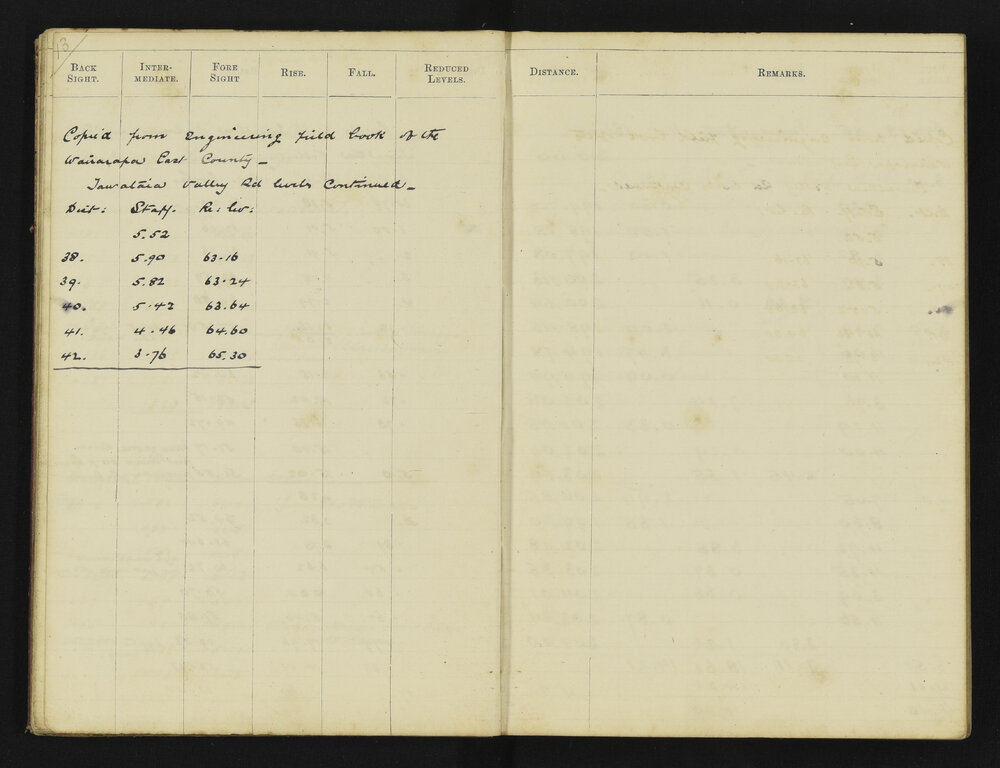 13
BACK SIGHT. INTER-MEDIATE. FORE SIGHT RISE. FALL. REDUCED LEVELS. DISTANCE. REMARKS.
Copied from Engineering field book of the
Wairarapa East County —
Tawataia Valley Rd levels Continued —
Dist: Staff. Re: lev:
5.52
38. 5.90 63.16
39. 5.82 63.24
40. 5.42 63.64
41. 4.46 64.60
42. 3.76 65.30